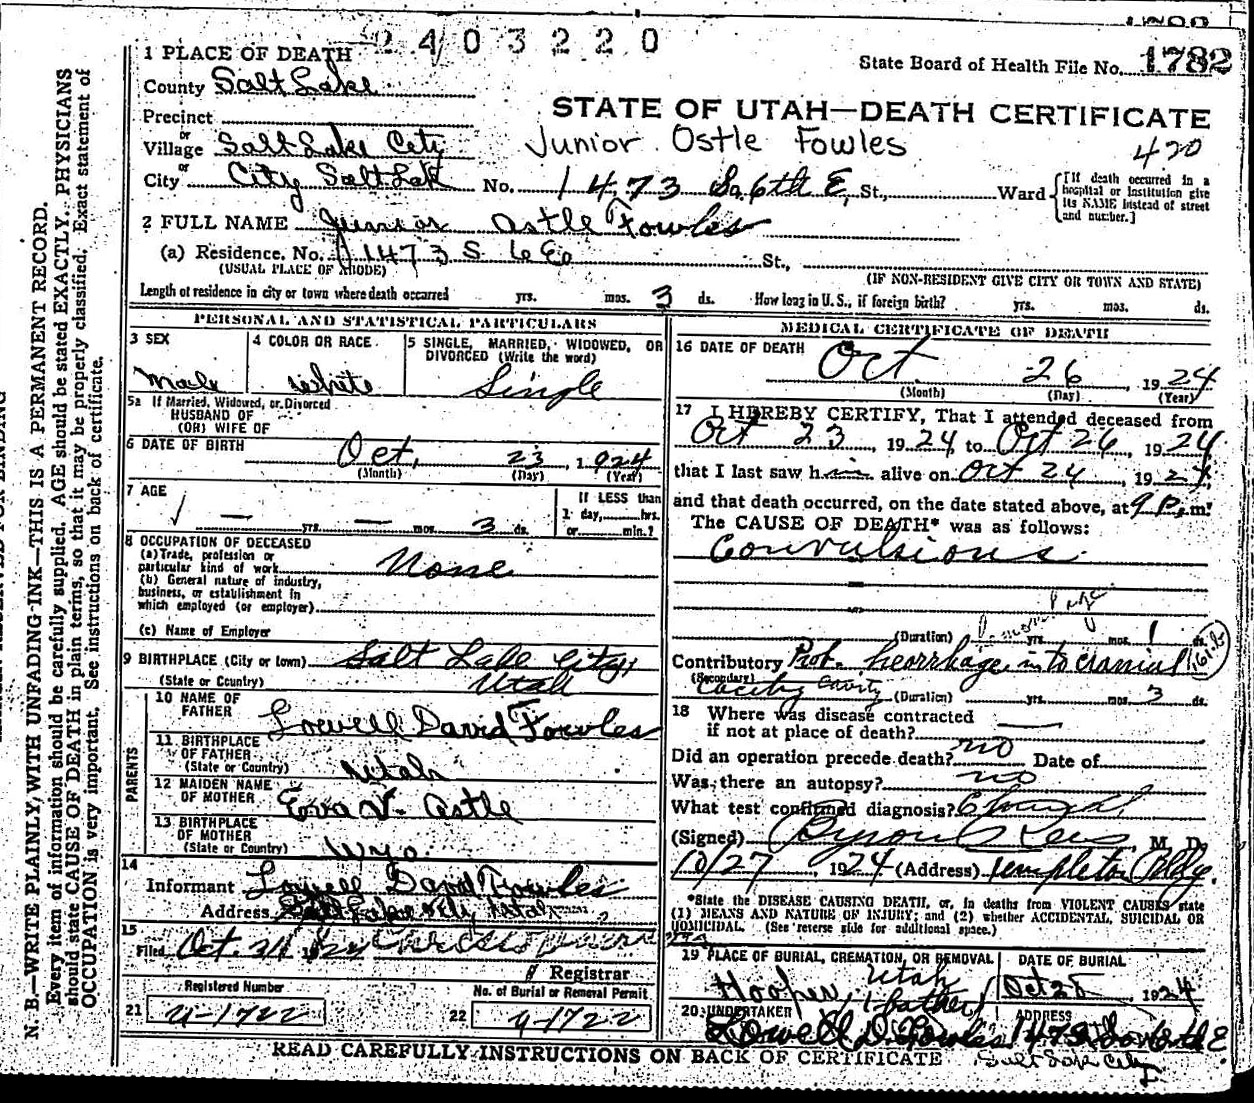 2403220
1 PLACE OF DEATH
State Board of Health File No. 1782
County Salt Lake
STATE OF UTAH—DEATH CERTIFICATE
Precinct
or
Village Salt Lake City
Junior Ostle Fowles
420
or
City City Salt Lake No. 1473 So. 6th E, St., Ward
[If death occurred in a hospital or institution give its NAME instead of street and number.]
2 FULL NAME Junior Astle Fowles
(a) Residence. No. 1473 S. 6 Eo St.,
(USUAL PLACE OF ABODE) (IF NON-RESIDENT GIVE CITY OR TOWN AND STATE)
Length of residence in city or town where death occurred yrs. mos. 3 ds. How long in U.S., if foreign birth? yrs. mos. ds.
PERSONAL AND STATISTICAL PARTICULARS
3 SEX
Male
4 COLOR OR RACE
White
5 SINGLE, MARRIED, WIDOWED, OR DIVORCED (Write the word)
Single
5a If Married, Widowed, or Divorced
HUSBAND OF
(OR) WIFE OF
6 DATE OF BIRTH Oct. 23, 1924
(Month) (Day) (Year)
7 AGE
— yrs. — mos. 3 ds.
If LESS than
1 day, hrs.
or min.?
8 OCCUPATION OF DECEASED
(a) Trade, profession or
particular kind of work None
(b) General nature of industry,
business, or establishment in
which employed (or employer)
(c) Name of Employer
9 BIRTHPLACE (City or town) Salt Lake City,
(State or Country) Utah
PARENTS
10 NAME OF FATHER Lowell David Fowles
11 BIRTHPLACE OF FATHER
(State or Country) Utah
12 MAIDEN NAME OF MOTHER Eva V. Astle
13 BIRTHPLACE OF MOTHER
(State or Country) Wyo.
14
Informant Lowell David Fowles
Address Salt Lake City, Utah
15
Filed Oct. 31 1924
Registrar
Registered Number
21 4-1722
No. of Burial or Removal Permit
22 4-1722
MEDICAL CERTIFICATE OF DEATH
16 DATE OF DEATH Oct 26, 1924
(Month) (Day) (Year)
17 I HEREBY CERTIFY, That I attended deceased from
Oct 23, 1924 to Oct 26, 1924
that I last saw him alive on Oct 24, 1924,
and that death occurred, on the date stated above, at 9 P. m.
The CAUSE OF DEATH* was as follows:
Convulsions
(Duration) yrs. mos. 1 ds.
Contributory Prob. heorrhage into cranial 161b
(Secondary) cavity (Duration) yrs. mos. 3 ds.
18 Where was disease contracted
if not at place of death?
Did an operation precede death? no Date of
Was there an autopsy? no
What test confirmed diagnosis?
(Signed) M. D.
10/27, 1924 (Address) Templeton Bldg.
*State the DISEASE CAUSING DEATH, or, in deaths from VIOLENT CAUSES state
(1) MEANS AND NATURE OF INJURY; and (2) whether ACCIDENTAL, SUICIDAL OR
HOMICIDAL. (See reverse side for additional space.)
19 PLACE OF BURIAL, CREMATION, OR REMOVAL
Hooper, Utah
DATE OF BURIAL
Oct 28 1924
20 UNDERTAKER (father)
Lowell D. Fowles
ADDRESS
1473 So 6th E
Salt Lake City
READ CAREFULLY INSTRUCTIONS ON BACK OF CERTIFICATE
N. B.—WRITE PLAINLY, WITH UNFADING INK—THIS IS A PERMANENT RECORD.
Every item of information should be carefully supplied. AGE should be stated EXACTLY. PHYSICIANS
should state CAUSE OF DEATH in plain terms, so that it may be properly classified. Exact statement of
OCCUPATION is very important. See instructions on back of certificate.